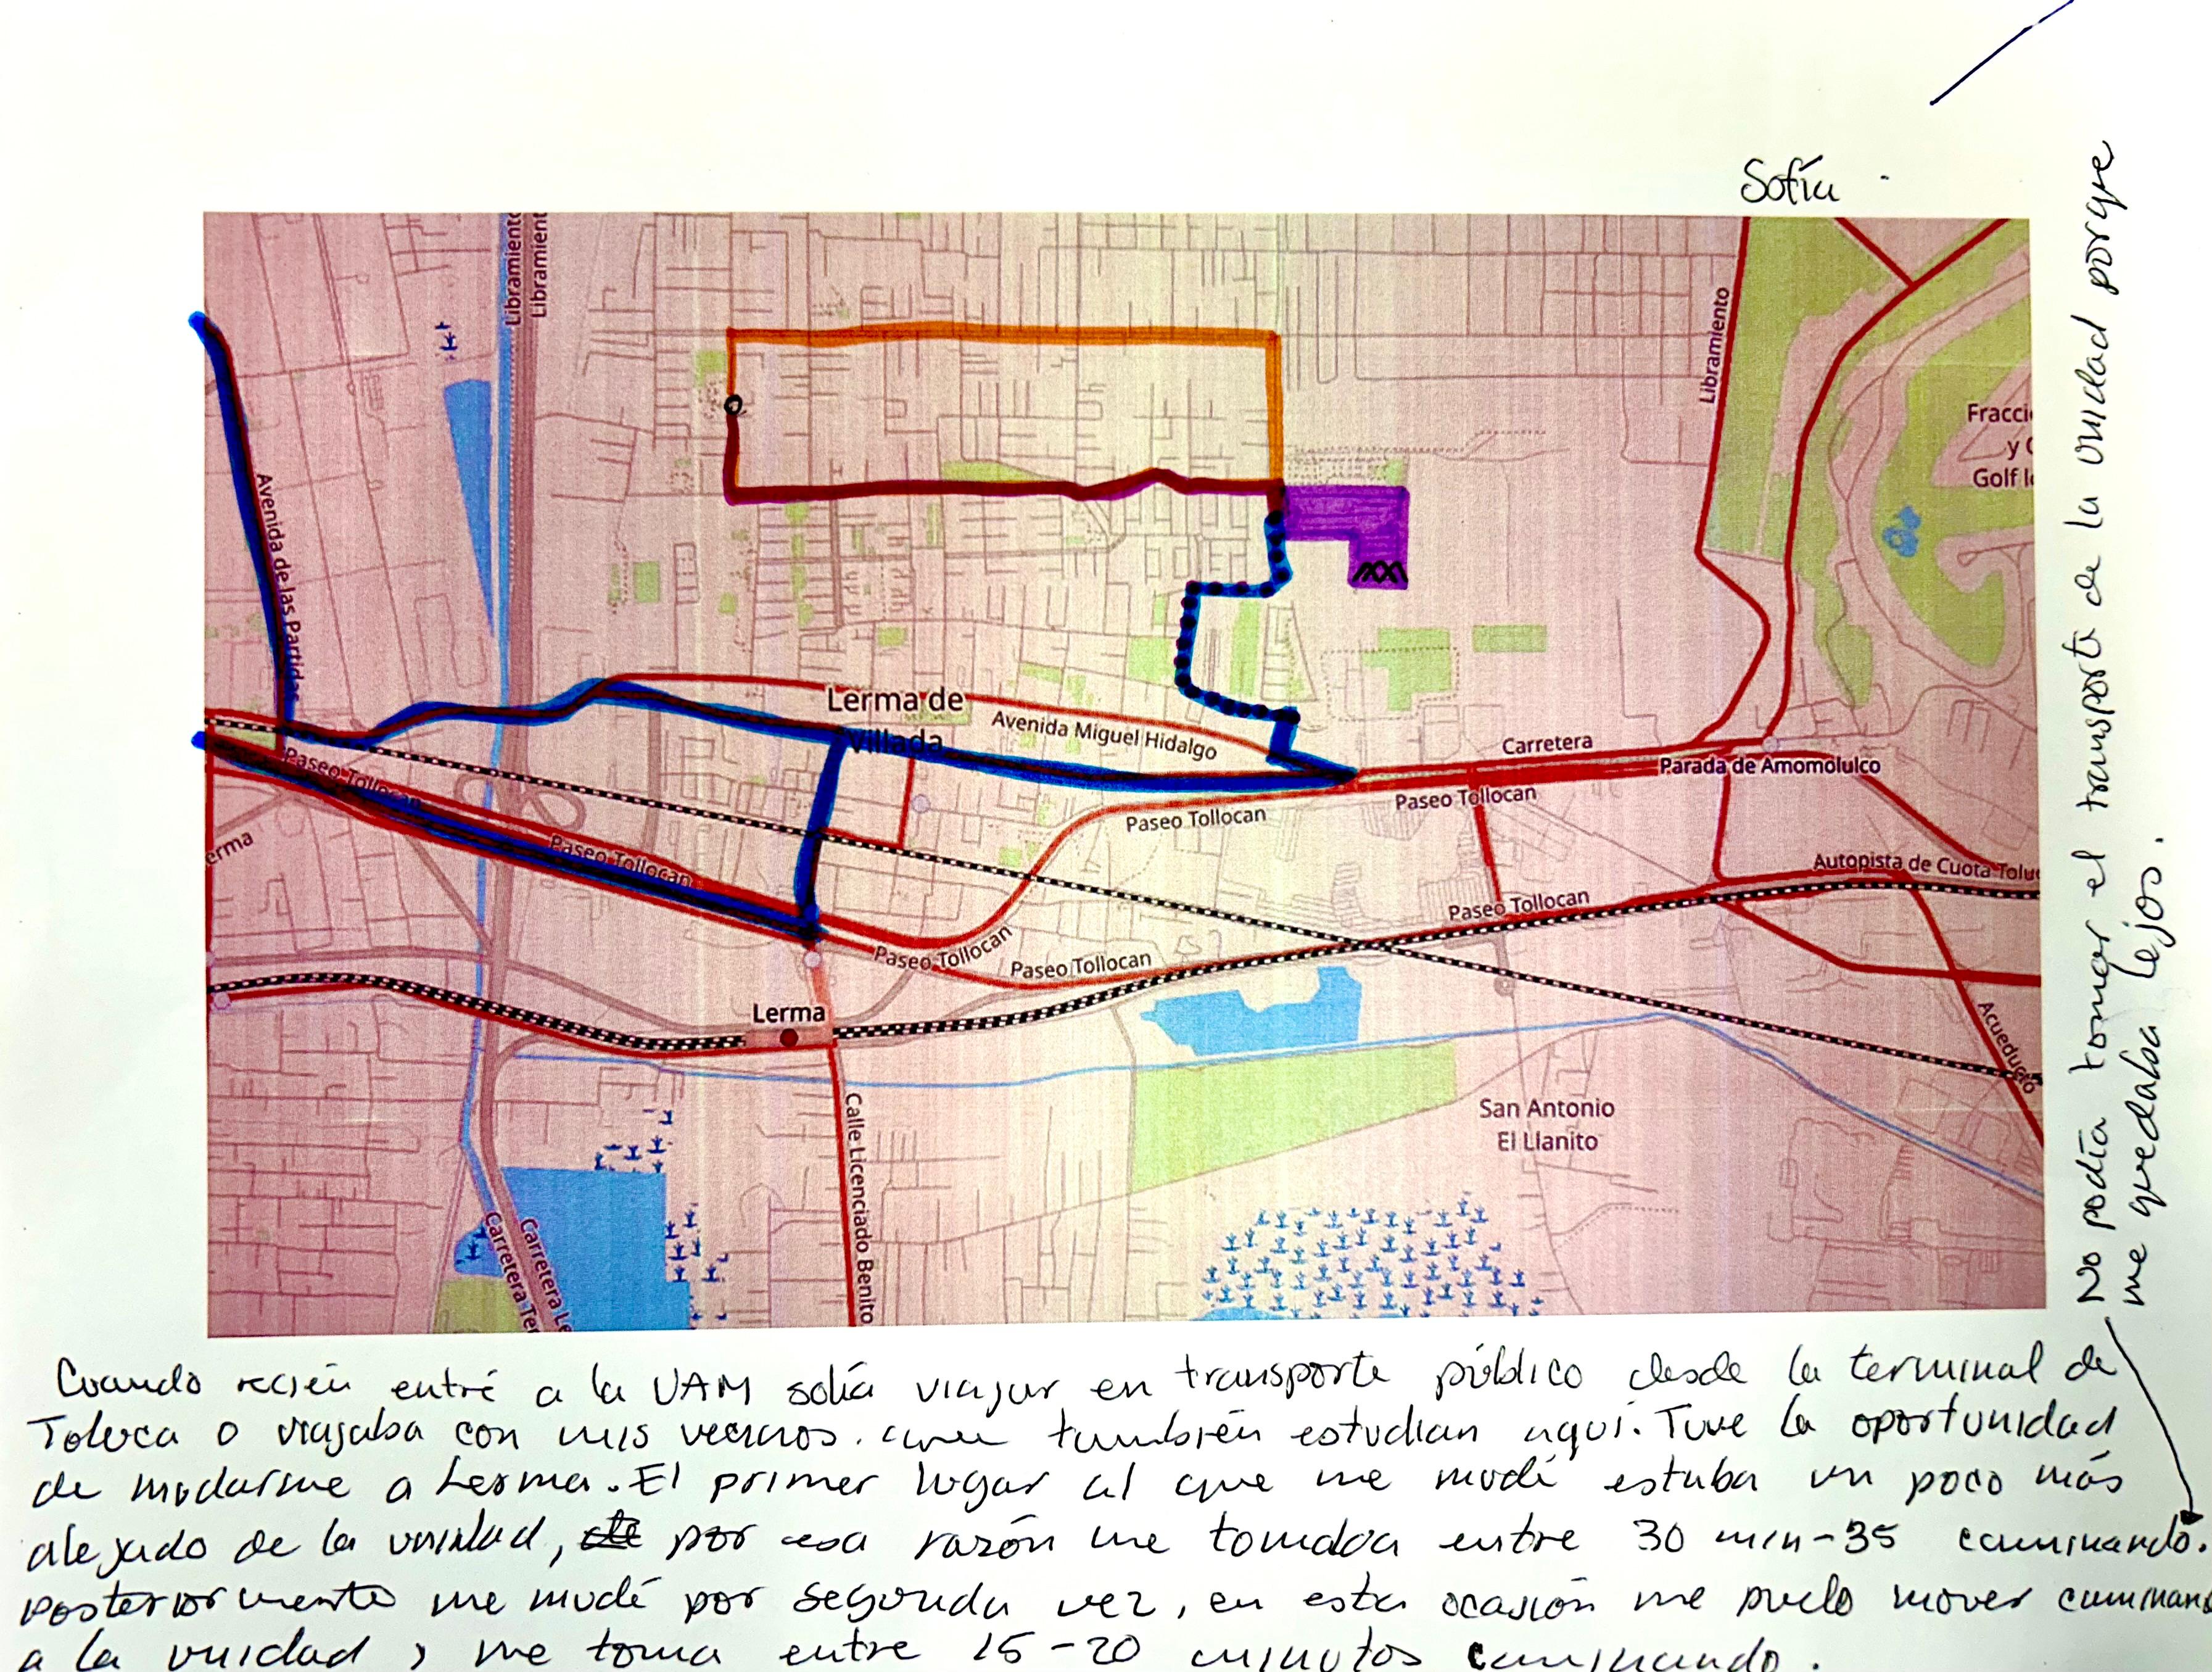 Sofía
Libramiento
Libramient
Libramiento
Fracci
y C
Golf l
Avenida de las Partidas
Lerma de
Villada
Avenida Miguel Hidalgo
Carretera
Parada de Amomolulco
Paseo Tollocan
Paseo Tollocan
Paseo Tollocan
Paseo Tollocan
erma
Autopista de Cuota Tolu
Paseo Tollocan
Paseo Tollocan
Paseo Tollocan
Lerma
Acueducto
San Antonio
El Llanito
Calle Licenciado Benito
Carretera Ter
Carretera Le
No podía tomar el transporte de la unidad porque
me quedaba lejos.
Cuando recién entré a la UAM solía viajar en transporte público desde la terminal de
Toluca o viajaba con mis vecinos que también estudian aquí. Tuve la oportunidad
de mudarme a Lerma. El primer lugar al que me mudé estaba un poco más
alejado de la unidad, por esa razón me tomaba entre 30 min-35 caminando.
Posteriormente me mudé por segunda vez, en esta ocasión me puedo mover caminand
a la unidad, me toma entre 15-20 minutos caminando.